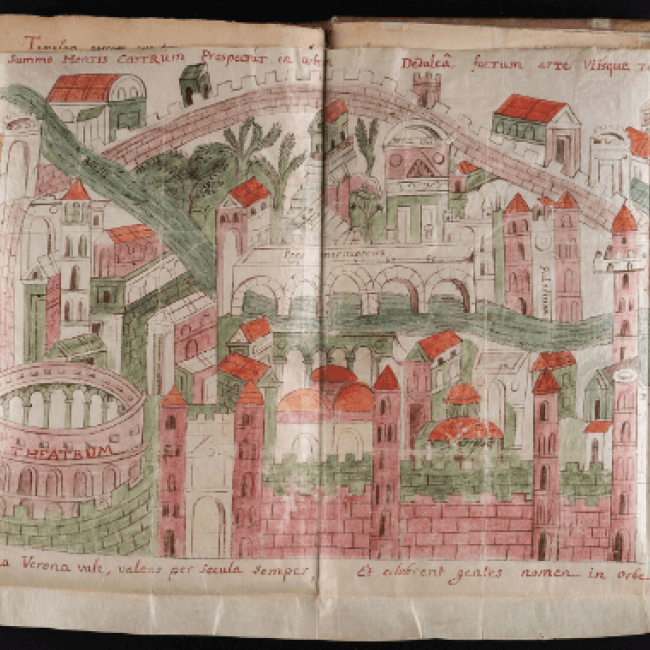 summo Montis CastRUm Prospectat in urbem Dedaleâ factum arte Viisque
Pons marmoreus
Palatium
THEATRUM
Verona vale, valeas per secula semper, Et celebrent gentes nomen in orbe